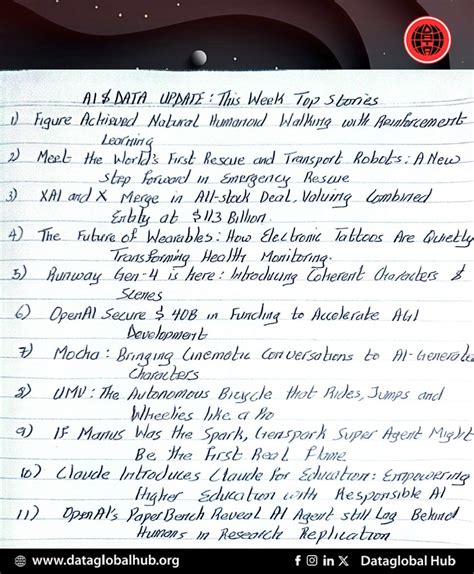 AI & DATA UPDATE : This Week Top Stories
1) Figure Achieved Natural Humanoid Walking with Reinforcement
Learning
2) Meet the World's First Rescue and Transport Robots : A New
Step forward in Emergency Rescue
3) XAI and X Merge in All-stock Deal, Valuing Combined
Entity at $113 Billion.
4) The Future of Wearables : How Electronic Tattoos Are Quietly
Transforming Health Monitoring.
5) Runway Gen-4 is here : Introducing Coherent Characters &
Scenes
6) OpenAI Secure $ 40B in Funding to Accelerate AGI
Development
7) Mocha : Bringing Cinematic Conversations to AI-Generated
Characters
8) UMV : The Autonomous Bicycle that Rides, Jumps and
Wheelies like a Pro
9) If Manus Was the Spark, Genspark Super Agent Might
Be the First Real Flame
10) Claude Introduces Claude for Education : Empowering
Higher Education with Responsible AI
11) OpenAI's PaperBench Reveal AI Agent still Lag Behind
Humans in Research Replication
www.dataglobalhub.org
Dataglobal Hub